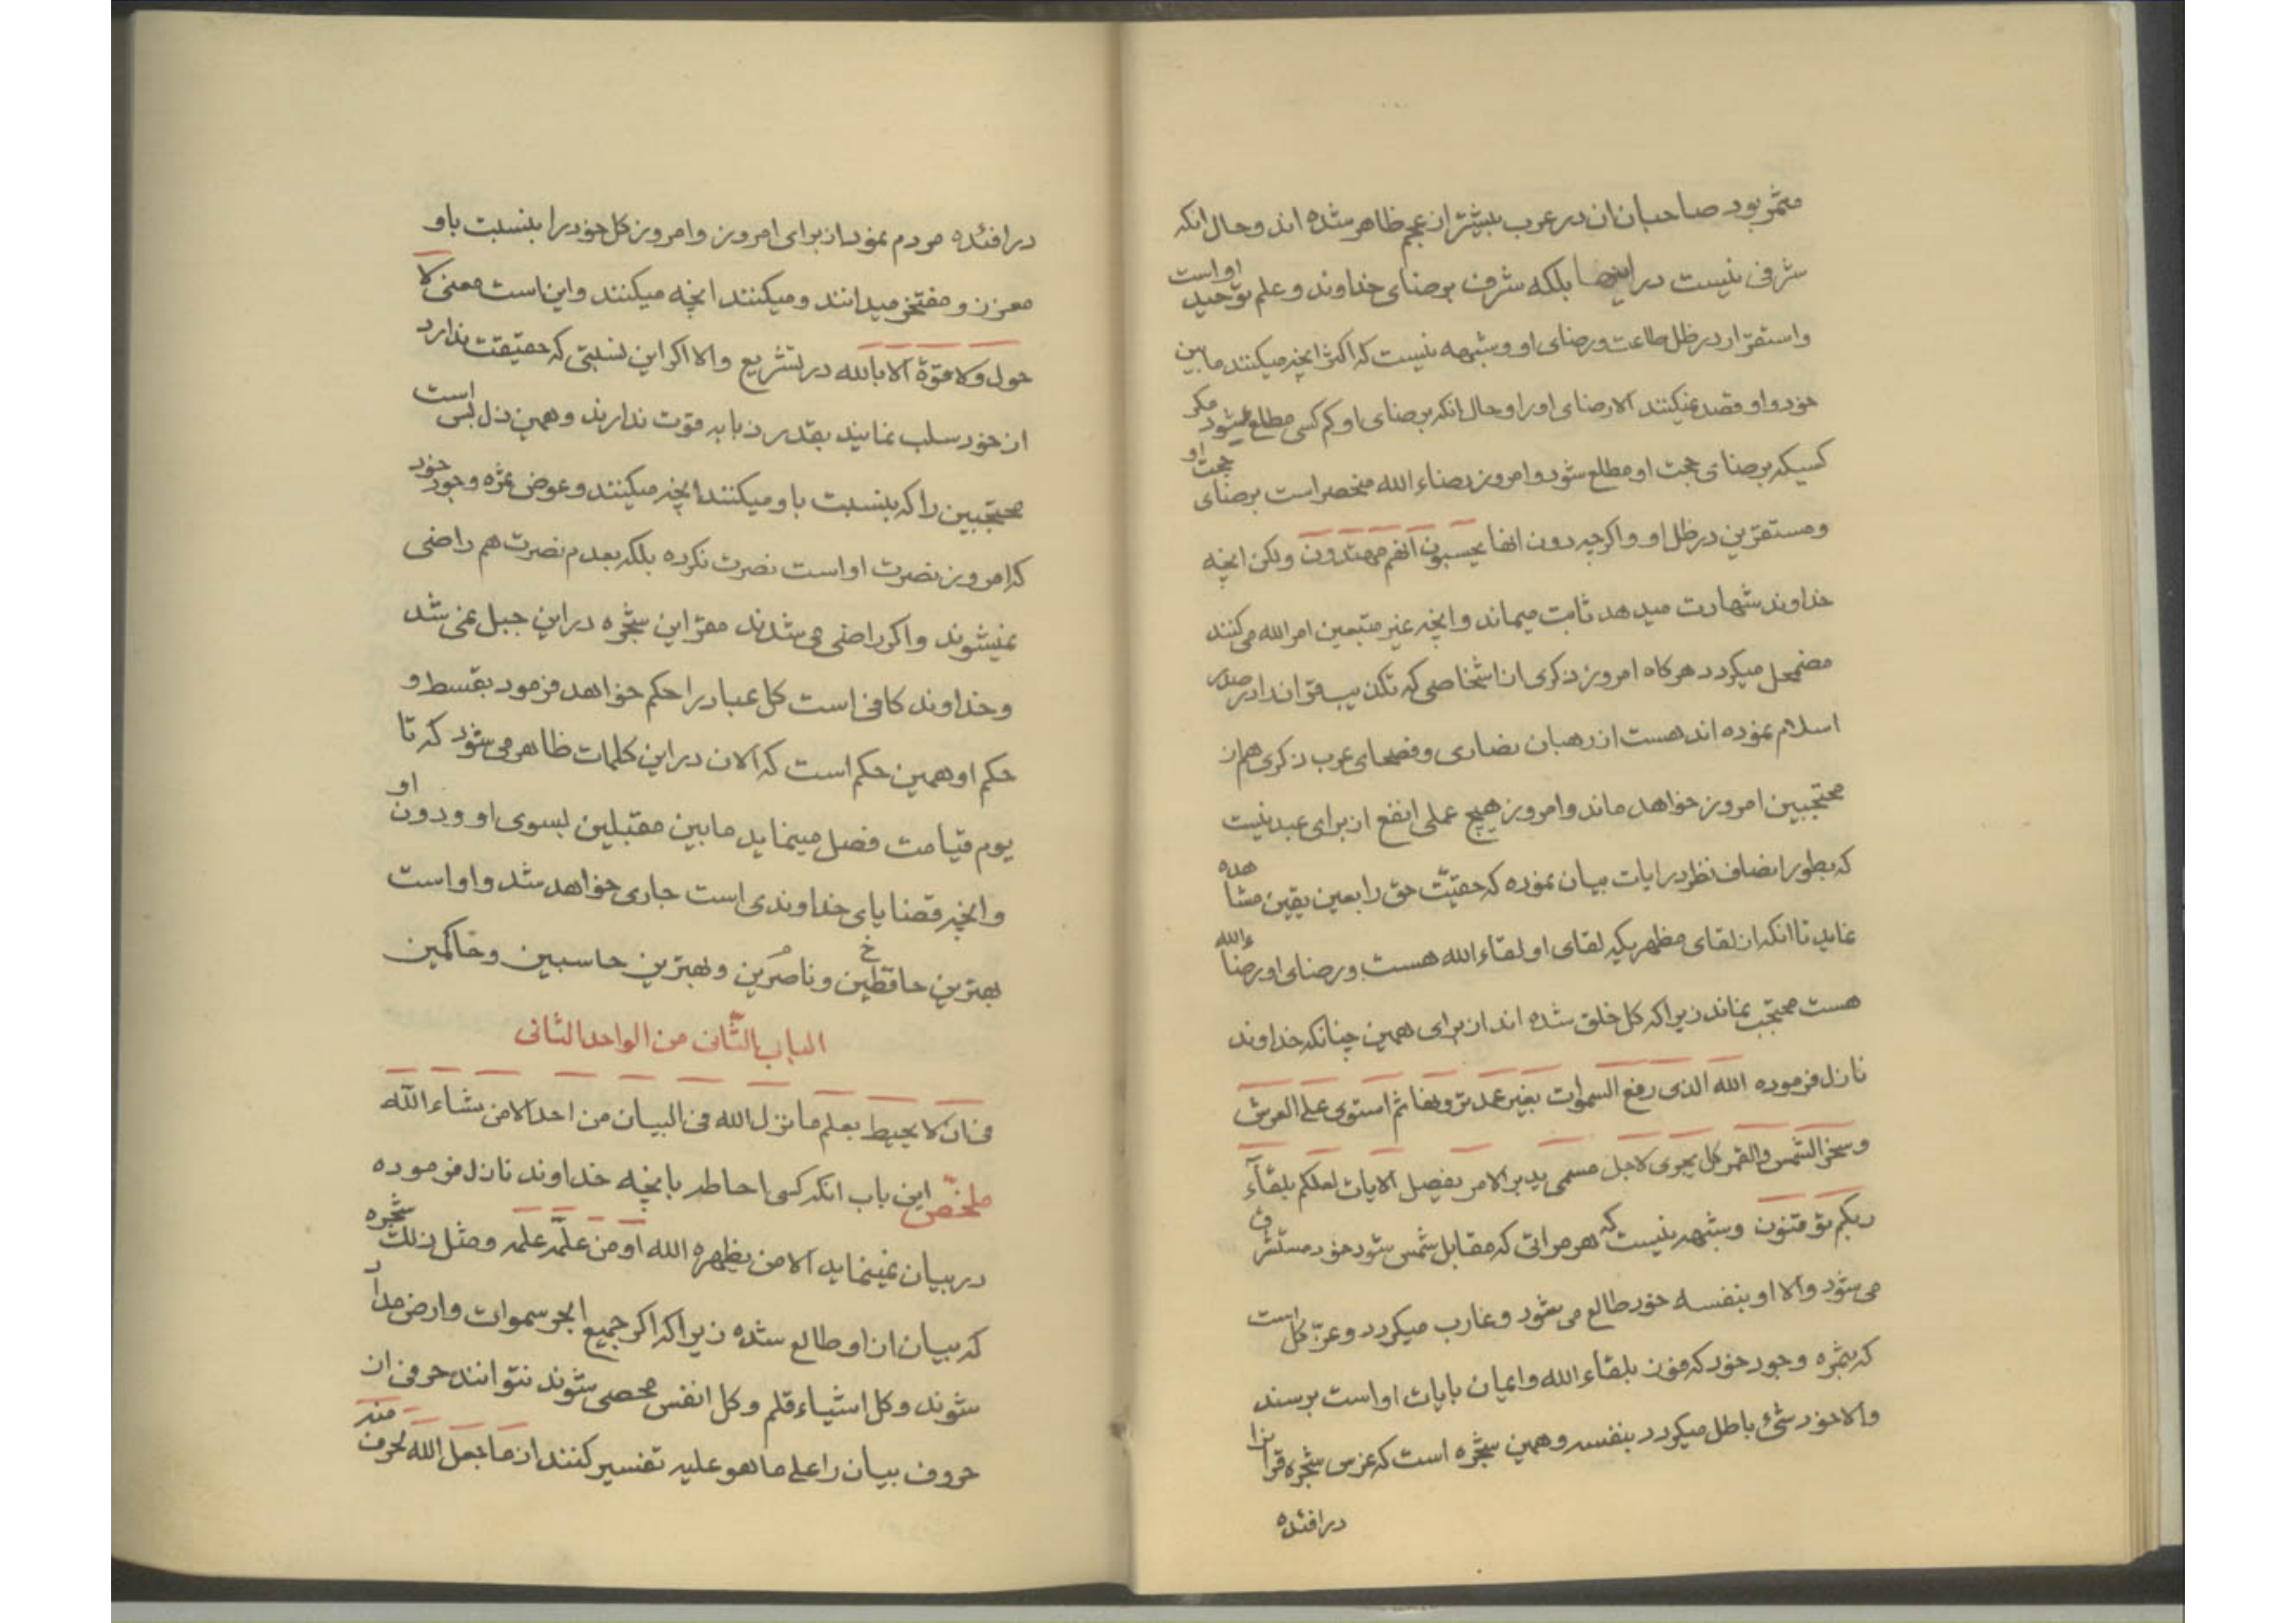 مثمر بود صاحبان ان در عرب بیشتر از عجم ظاهر شده اند و حال انکه
شرفی نیست در اینها بلکه شرف برضای خداوند و علم توحید او است
و استقرار در ظل طاعت و رضای او و شبهه نیست که اکثر انچه میکنند ما بین
خود و او قصد نمیکنند الا رضای او را و حال انکه برضای او کم کسی مطلع میشود مکر
کسیکه برضای حجت او مطلع شود و امروز رضاء الله منحصر است برضای حجت او
و مستقرین در ظل او و اکرچه دون انها یحسبون انهم مهتدون ولکن انچه
خداوند شهادت میدهد ثابت میماند و انچه غیر متبعین امر الله می کنند
مضمحل میکردد هرکاه امروز ذکری از اشخاصی که تکذیب قران در صدر
اسلام نموده اند هست از رهبان نصاری و فصحای عرب ذکری هم از
محتجبین امروز خواهد ماند و امروز هیچ عملی انفع از برای عبد نیست
که بطور انصاف نظر در ایات بیان نموده که حقیت حق را بعین یقین مشاهده
نماید تا انکه از لقای مظهریکه لقای او لقاء الله هست و رضای او رضاء الله
هست محتجب نماند زیرا که کل خلق شده اند از برای همین چنانکه خداوند
نازل فرموده الله الذی رفع السموات بغیر عمد ترونها ثم استوی علی العرش
و سخر الشمس والقمر کل یجری لاجل مسمی یدبر الامر یفصل الایات لعلکم بلقاء
ربکم توقنون و شبهه نیست که هر مراتی که مقابل شمس شود خود مستشرق
می شود والا او بنفسه خود طالع می شود و غارب میکردد و عز کل است
که بثمره وجود خود که فوز بلقاء الله و ایمان بایات او است برسند
والا خود شئ باطل میکردد بنفسه و همین شجره است که غرس شجره قران را
در افئده
در افئده مردم نمود از برای امروز و امروز کل خود را بنسبت باو
معزز و مفتخر میدانند و میکنند انچه میکنند و این است معنی لا
حول ولا قوة الا بالله در تشریع والا اکر این نسبتی که حقیقت ندارد
از خود سلب نمایند بقدر ذبابه قوت ندارند و همین ذل بس است
محتجبین را که بنسبت باو میکنند انچه میکنند و عوض ثمره وجود خود
که امروز نصرت او است نصرت نکرده بلکه بعدم نصرت هم راضی
نمیشوند و اکر راضی می شدند مقر این شجره در این جبل نمی شد
و خداوند کافی است کل عباد را حکم خواهد فرمود بقسط و
حکم او همین حکم است که الان در این کلمات ظاهر می شود که تا
یوم قیامت فصل مینماید ما بین مقبلین بسوی او و دون او
و انچه قضایای خداوندی است جاری خواهد شد و او است
بهترین حافظین و ناصرین و بهترین حاسبین و حاکمین
الباب الثانی من الواحد الثانی
فی ان لا یحیط بعلم ما نزل الله فی البیان من احد الا من شاء الله
ملخص این باب انکه کسی احاطه بانچه خداوند نازل فرموده
در بیان نمینماید الا من یظهره الله او من علمه علمه و مثل ذلک شجره
که بیان از او طالع شده زیرا که اکر جمیع ابحر سموات و ارض مداد
شوند و کل اشیاء قلم و کل انفس محصی شوند نتوانند حرفی از
حروف بیان را علی ما هو علیه تفسیر کنند از ما جعل الله لحرف منه